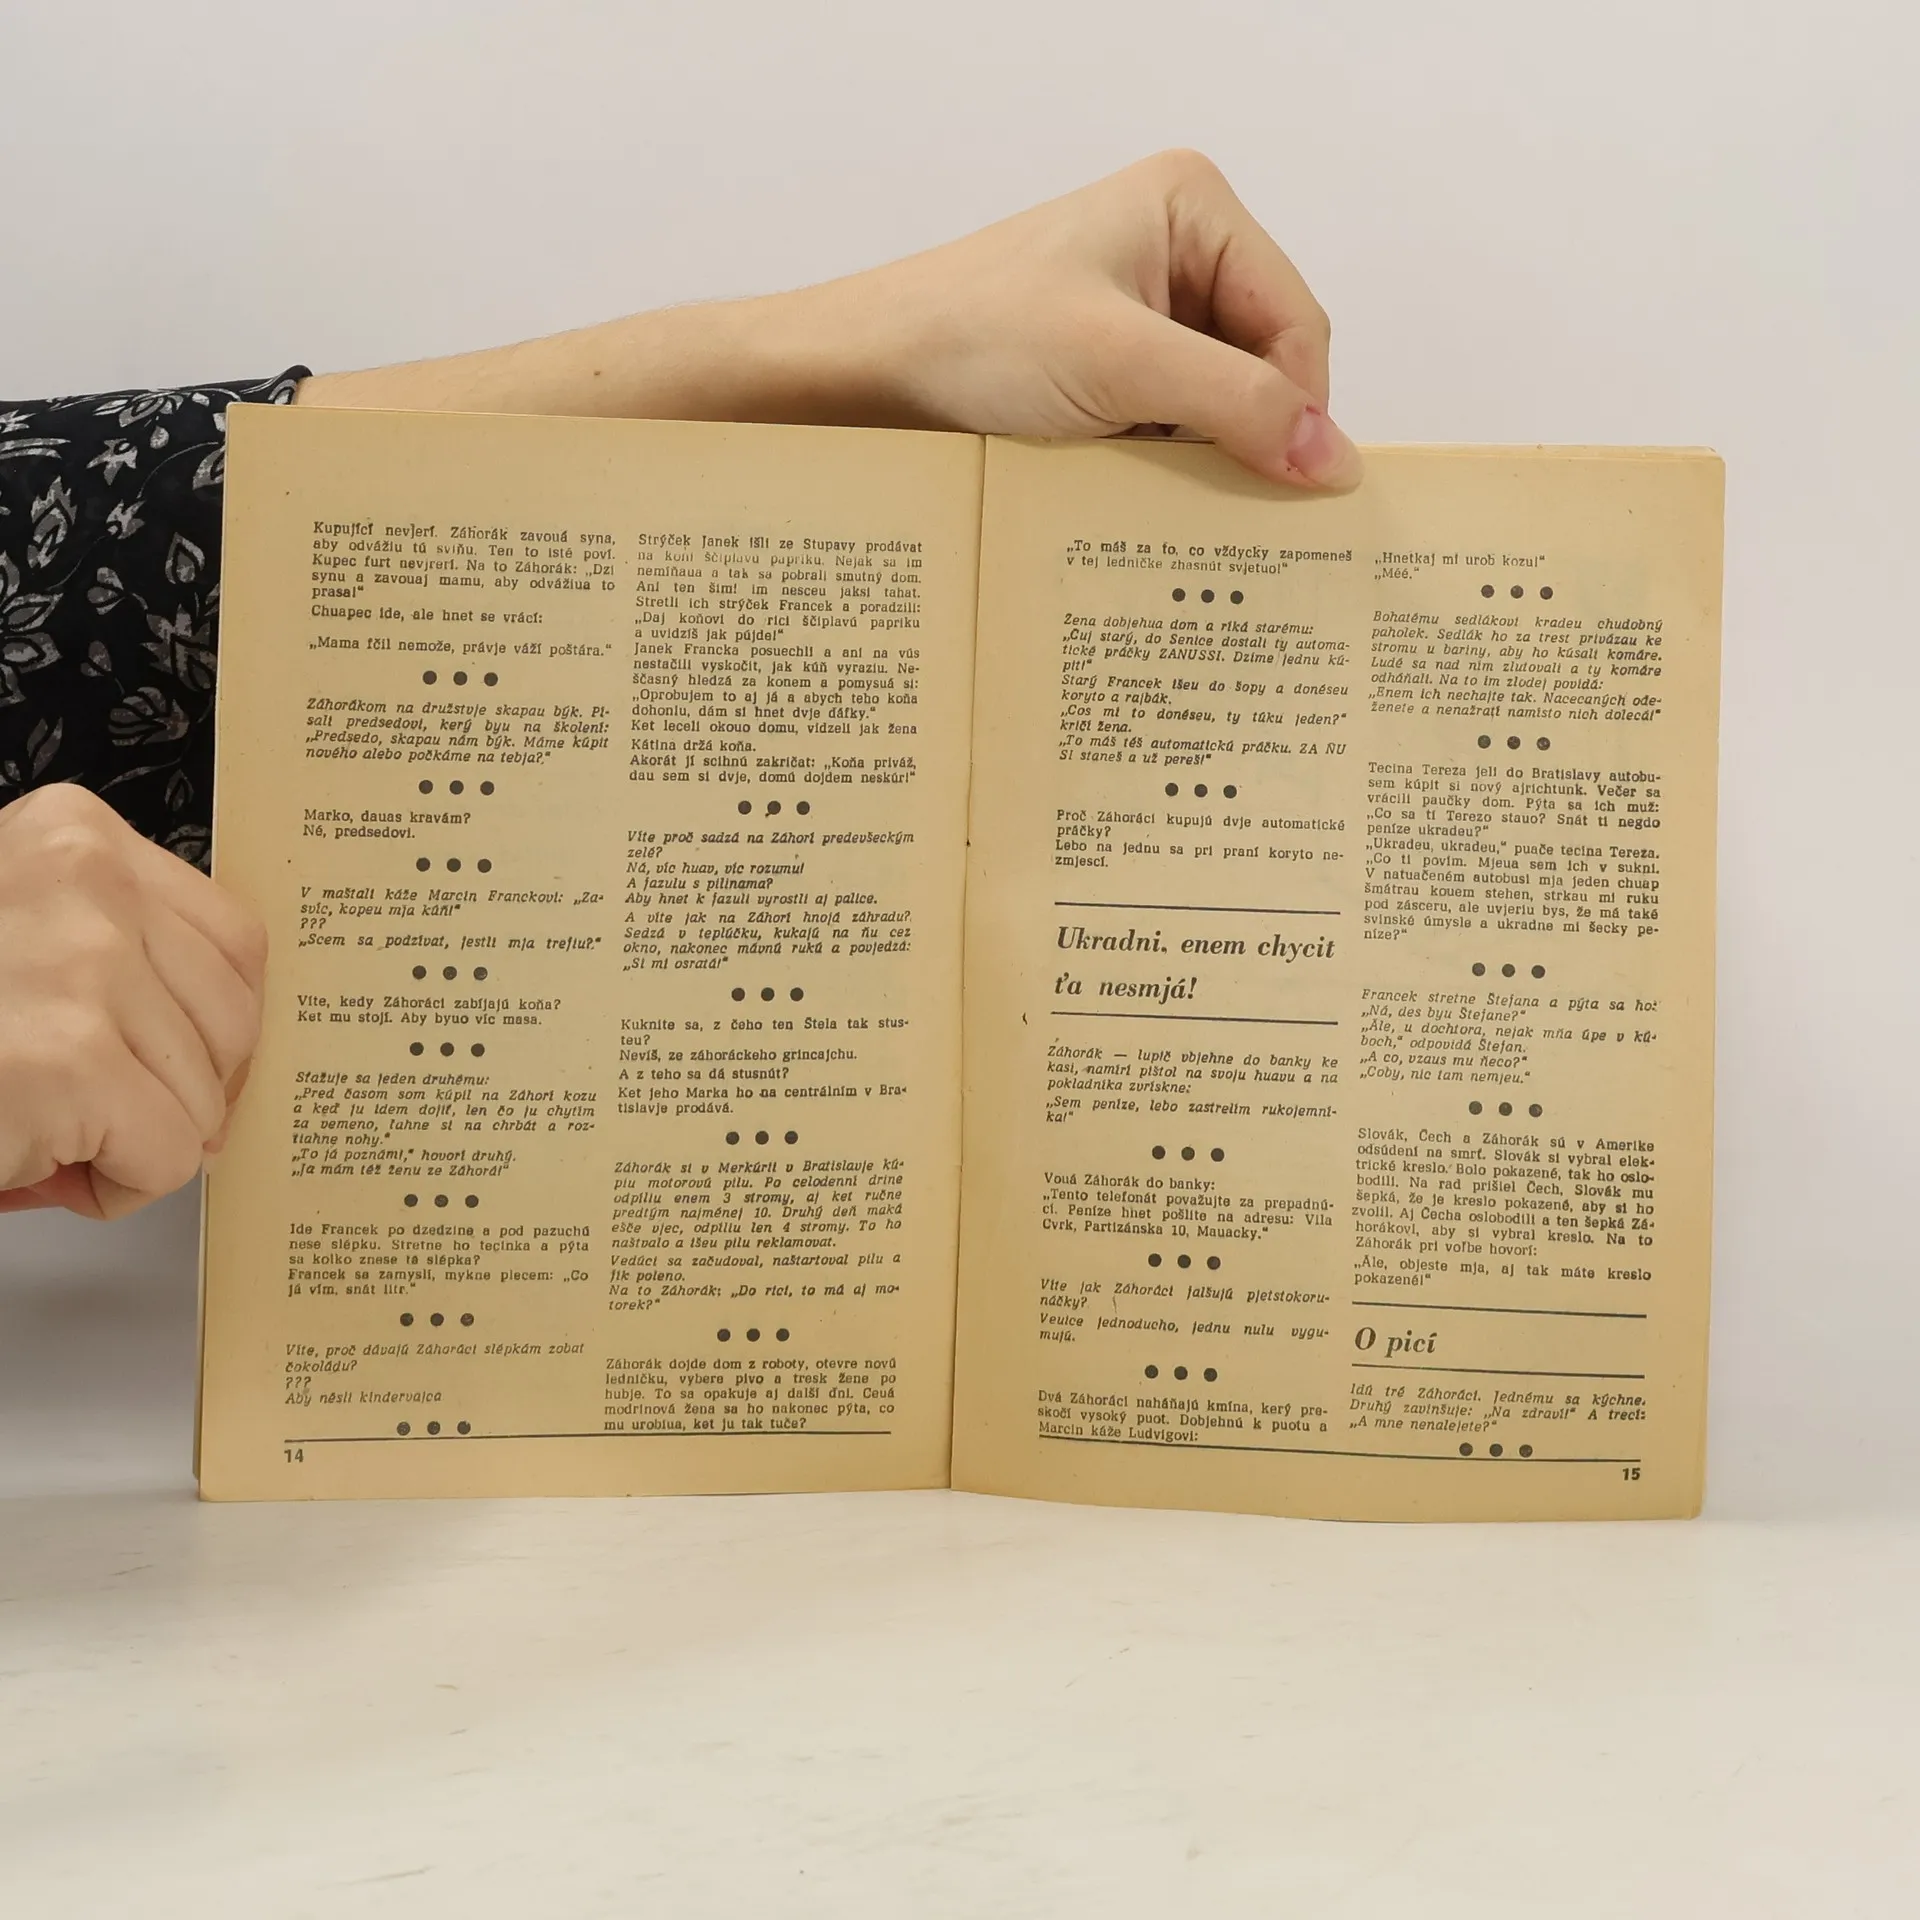 Kupující nevjerí. Záhorák zavouá syna,
aby odvážiu tú sviňu. Ten to isté poví.
Kupec furt nevjrerí. Na to Záhorák: „Dzi
synu a zavouaj mamu, aby odvážiua to
prasa!“
Chuapec ide, ale hnet se vrácí:
„Mama fčil nemože, právje váží poštára.“
● ● ●
Záhorákom na družstvje skapau býk. Pí-
sali predsedovi, kerý byu na školení:
„Predsedo, skapau nám býk. Máme kúpit
nového alebo počkáme na tebja?“
● ● ●
Marko, dauas kravám?
Né, predsedovi.
● ● ●
V maštali káže Marcin Franckovi: „Za-
svíc, kopeu mja kúň!“
???
„Scem sa podzívat, jestli mja trefiu?“
● ● ●
Víte, kedy Záhoráci zabíjajú koňa?
Ket mu stojí. Aby byuo víc masa.
● ● ●
Sťažuje sa jeden druhému:
„Pred časom som kúpil na Záhorí kozu
a keď ju idem dojiť, len čo ju chytím
za vemeno, ľahne si na chrbát a roz-
tiahne nohy.“
„To já poznám!,“ hovorí druhý.
„Ja mám též ženu ze Záhorá!“
● ● ●
Ide Francek po dzedzine a pod pazuchú
nese slépku. Stretne ho tecinka a pýta
sa kolko znese tá slépka?
Francek sa zamyslí, mykne plecem: „Co
já vím, snát litr.“
● ● ●
Víte, proč dávajú Záhoráci slépkám zobat
čokoládu?
???
Aby nésli kindervajca
● ● ●
14
Strýček Janek išli ze Stupavy prodávat
na koni ščiplavú papriku. Nejak sa im
nemíňaua a tak sa pobrali smutný dom.
Ani ten šiml im nesceu jaksi tahat.
Stretli ich strýček Francek a poradzili:
„Daj koňovi do rici ščiplavú papriku
a uvidzíš jak pújde!“
Janek Francka posuechli a ani na vús
nestačili vyskočit, jak kúň vyraziu. Ne-
ščasný hledzá za konem a pomysuá si:
„Oprobujem to aj já a abych teho koňa
dohoniu, dám si hnet dvje dáfky.“
Ket leceli okouo domu, vidzeli jak žena
Kátina držá koňa.
Akorát jí scihnú zakričat: „Koňa priváž,
dau sem si dvje, domú dojdem neskúr!“
● ● ●
Víte proč sadzá na Záhorí predevšeckým
zelé?
Ná, víc huav, víc rozumu!
A fazulu s pilinama?
Aby hnet k fazuli vyrostli aj palice.
A víte jak na Záhorí hnojá záhradu?
Sedzá v teplúčku, kukajú na ňu cez
okno, nakonec mávnú rukú a povjedzá:
„Si mi osratá!“
● ● ●
Kuknite sa, z čeho ten Štela tak stus-
teu?
Nevíš, ze záhoráckeho grincajchu.
A z teho sa dá stusnút?
Ket jeho Marka ho na centrálním v Bra-
tislavje prodává.
● ● ●
Záhorák si v Merkúrii v Bratislavje kú-
piu motorovú pilu. Po celodenní drine
odpíliu enem 3 stromy, aj ket ručne
predtým najménej 10. Druhý deň maká
ešče vjec, odpíliu len 4 stromy. To ho
naštvalo a išeu pilu reklamovat.
Vedúci sa začudoval, naštartoval pilu a
fik poleno.
Na to Záhorák: „Do rici, to má aj mo-
torek?“
● ● ●
Záhorák dojde dom z roboty, otevre novú
ledničku, vybere pivo a tresk žene po
hubje. To sa opakuje aj další dni. Ceuá
modrinová žena sa ho nakonec pýta, co
mu urobiua, ket ju tak tuče?
„To máš za to, co vždycky zapomeneš
v tej ledničke zhasnút svjetuo!“
● ● ●
Žena dobjehua dom a ríká starému:
„Čuj starý, do Senice dostali ty automa-
tické práčky ZANUSSI. Dzime jednu kú-
pit!“
Starý Francek išeu do šopy a donéseu
koryto a rajbák.
„Cos mi to donéseu, ty túku jeden?“
kričí žena.
„To máš téš automatickú práčku. ZA ŇU
SI staneš a už pereš!“
● ● ●
Proč Záhoráci kupujú dvje automatické
práčky?
Lebo na jednu sa pri praní koryto ne-
zmjescí.
Ukradni, enem chycit
ťa nesmjá!
Záhorák — lupič vbjehne do banky ke
kasi, namíri pištol na svoju huavu a na
pokladníka zvrískne:
„Sem peníze, lebo zastrelím rukojemní-
ka!“
● ● ●
Vouá Záhorák do banky:
„Tento telefonát považujte za prepadnú-
cí. Peníze hnet pošlite na adresu: Vila
Cvrk, Partizánska 10, Mauacky.“
● ● ●
Víte jak Záhoráci falšujú pjetstokoru-
náčky?
Veulce jednoducho, jednu nulu vygu-
mujú.
● ● ●
Dvá Záhoráci naháňajú kmína, kerý pre-
skočí vysoký puot. Dobjehnú k puotu a
Marcin káže Ludvigovi:
„Hnetkaj mi urob kozu!“
„Méé.“
● ● ●
Bohatému sedlákovi kradeu chudobný
paholek. Sedlák ho za trest privázau ke
stromu u bariny, aby ho kúsali komáre.
Ludé sa nad ním zlutovali a ty komáre
odháňali. Na to im zlodej povidá:
„Enem ich nechajte tak. Nacecaných ode-
ženete a nenažratí namísto nich dolecá!“
● ● ●
Tecina Tereza jeli do Bratislavy autobu-
sem kúpit si nový ajrichtunk. Večer sa
vrácili paučky dom. Pýta sa ich muž:
„Co sa ti Terezo stauo? Snát ti negdo
peníze ukradeu?“
„Ukradeu, ukradeu,“ puače tecina Tereza.
„Co ti povím. Mjeua sem ich v sukni.
V natuačeném autobusi mja jeden chuap
šmátrau kouem stehen, strkau mi ruku
pod zásceru, ale uvjeriu bys, že má také
svinské úmysle a ukradne mi šecky pe-
níze?“
● ● ●
Francek stretne Štefana a pýta sa ho:
„Ná, des byu Štefane?“
„Ále, u dochtora, nejak mňa úpe v kú-
boch,“ odpovidá Štefan.
„A co, vzaus mu ňeco?“
„Coby, nic tam nemjeu.“
● ● ●
Slovák, Čech a Záhorák sú v Amerike
odsúdení na smrť. Slovák si vybral elek-
trické kreslo. Bolo pokazené, tak ho oslo-
bodili. Na rad prišiel Čech, Slovák mu
šepká, že je kreslo pokazené, aby si ho
zvolil. Aj Čecha oslobodili a ten šepká Zá-
horákovi, aby si vybral kreslo. Na to
Záhorák pri voľbe hovorí:
„Ále, objeste mja, aj tak máte kreslo
pokazené!“
O picí
Idú tré Záhoráci. Jednému sa kýchne.
Druhý zavinšuje: „Na zdraví!“ A trecí:
„A mne nenalejete?“
● ● ●
15